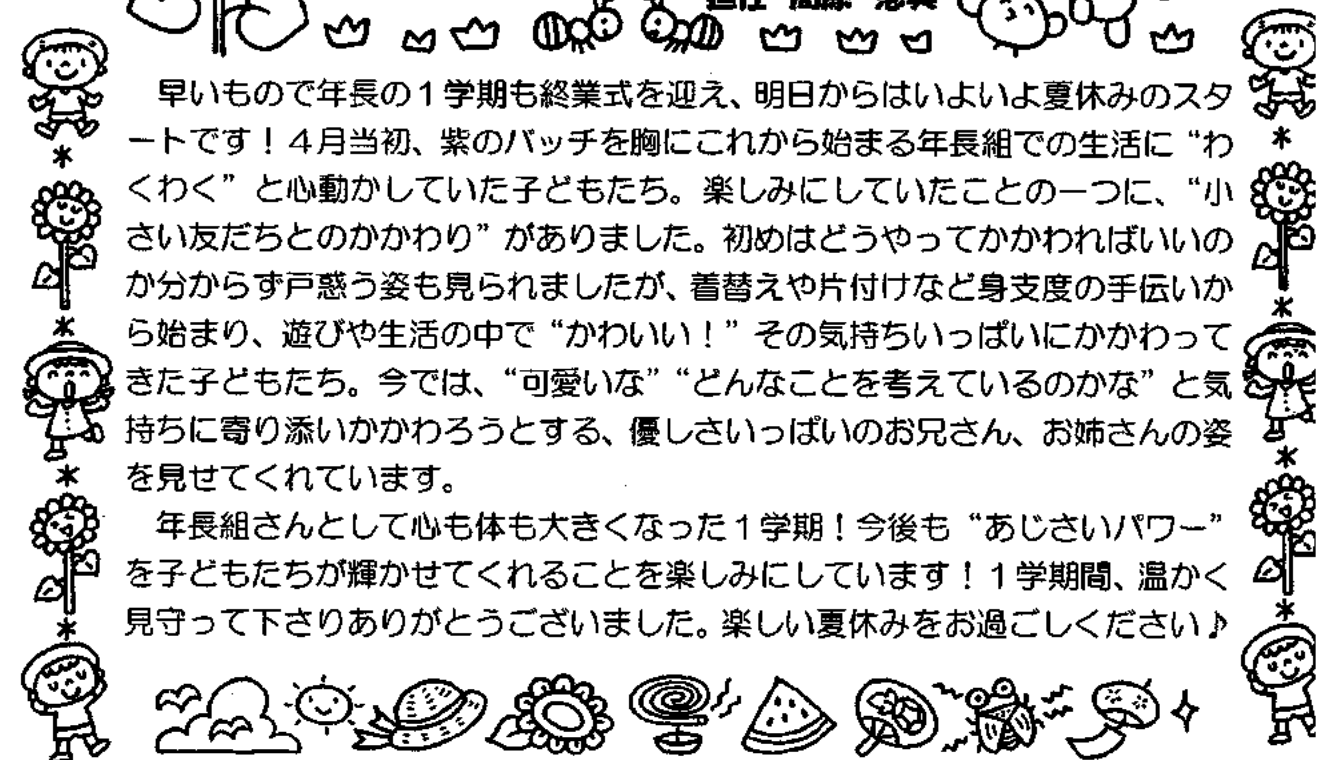 早いもので年長の1学期も終業式を迎え、明日からはいよいよ夏休みのスタ
ートです！4月当初、紫のバッチを胸にこれから始まる年長組での生活に“わ
くわく”と心動かしていた子どもたち。楽しみにしていたことの一つに、“小
さい友だちとのかかわり”がありました。初めはどうやってかかわればいいの
か分からず戸惑う姿も見られましたが、着替えや片付けなど身支度の手伝いか
ら始まり、遊びや生活の中で“かわいい！”その気持ちいっぱいにかかわって
きた子どもたち。今では、“可愛いな”“どんなことを考えているのかな”と気
持ちに寄り添いかかわろうとする、優しさいっぱいのお兄さん、お姉さんの姿
を見せてくれています。
年長組さんとして心も体も大きくなった1学期！今後も“あじさいパワー”
を子どもたちが輝かせてくれることを楽しみにしています！1学期間、温かく
見守って下さりありがとうございました。楽しい夏休みをお過ごしください♪